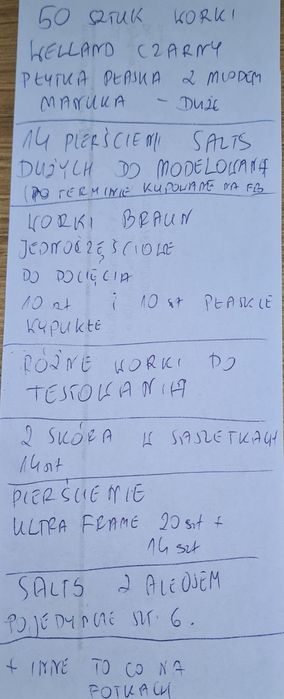 50 SZTUK WORKI
WELLAND CZARNY
PŁYTKA PŁASKA Z MIODEM
MANUKA - DUŻE
14 PIERŚCIENI SALTS
DUŻYCH DO MODELOWANIA
(PO TERMINIE KUPOWANE NA FB
WORKI BRAUN
JEDNOCZĘŚCIOWE
DO DOCIĘCIA
10 szt i 10 szt PŁASKIE
WYPUKŁE
RÓŻNE WORKI DO
TESTOWANIA
2 SKÓRA W SASZETKACH
14 szt
PIERŚCIENIE
ULTRA FRAME 20 szt +
14 szt
SALTS Z ALOESEM
POJEDYNCZE SZT. 6.
+ INNE TO CO NA
FOTKACH